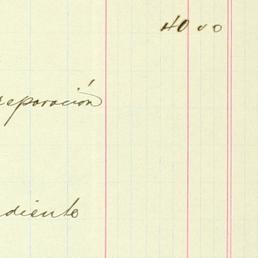 40 00
reparación
diente